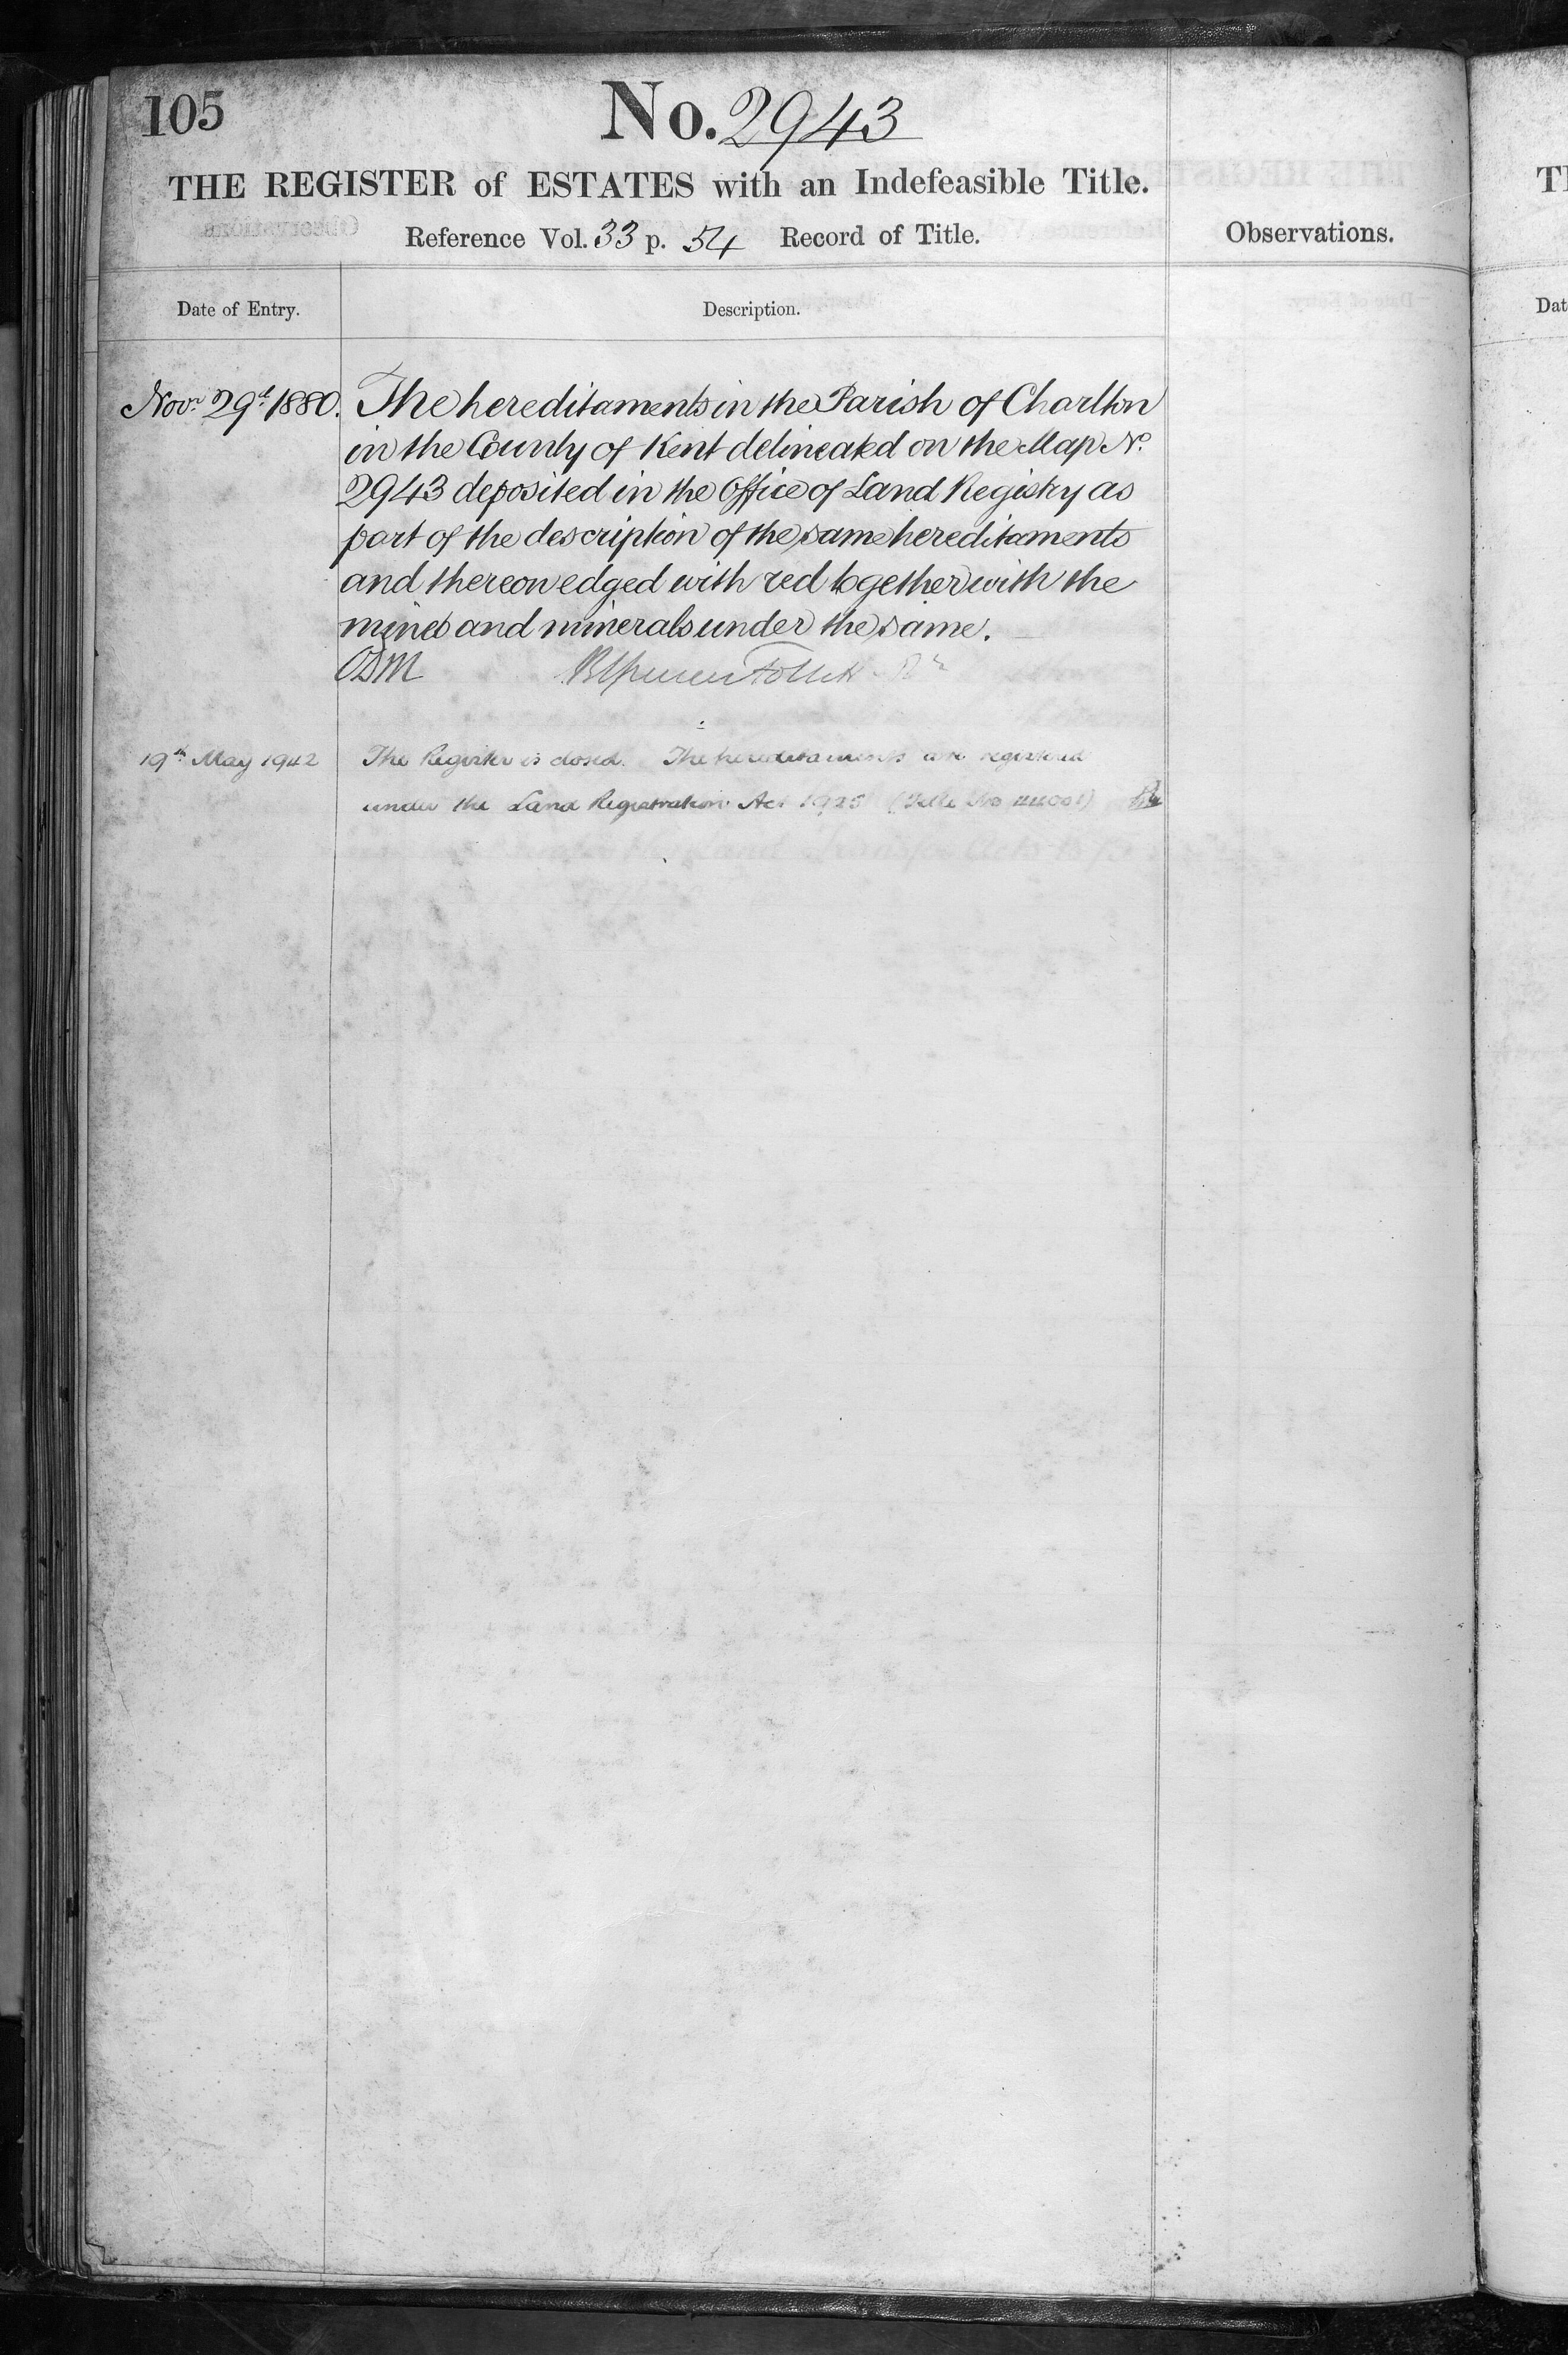 105
No. 2943
THE REGISTER of ESTATES with an Indefeasible Title.
Reference Vol. 33 p. 54 Record of Title.
Observations.
Date of Entry.
Description.
Novr 29th 1880. The hereditaments in the Parish of Charlton
in the County of Kent delineated on the Map No.
2943 deposited in the Office of Land Registry as
part of the description of the same hereditaments
and thereon edged with red together with the
mines and minerals under the same.
19th May 1942 The Register is closed. The hereditaments are registered
under the Land Registration Act 1925 (Title No